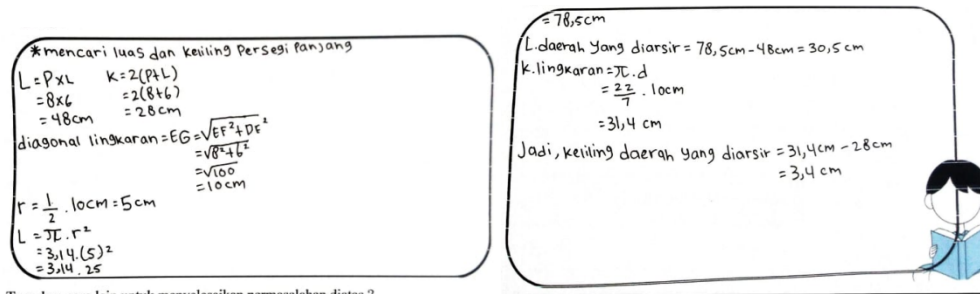 *mencari luas dan keliling persegi panjang
L = P x L
= 8x6
= 48cm
K = 2(P+L)
= 2(8+6)
= 28cm
diagonal lingkaran = EG = √EF²+DE²
= √8²+6²
= √100
= 10cm
r = 1/2 . 10cm = 5cm
L = π . r²
= 3,14.(5)²
= 3,14 . 25
= 78,5cm
L.daerah yang diarsir = 78,5cm - 48cm = 30,5 cm
K.lingkaran = π . d
= 22/7 . 10cm
= 31,4 cm
Jadi, keliling daerah yang diarsir = 31,4cm - 28cm
= 3,4 cm